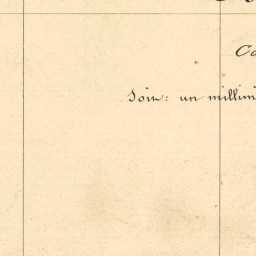 Co
Soit: un millim